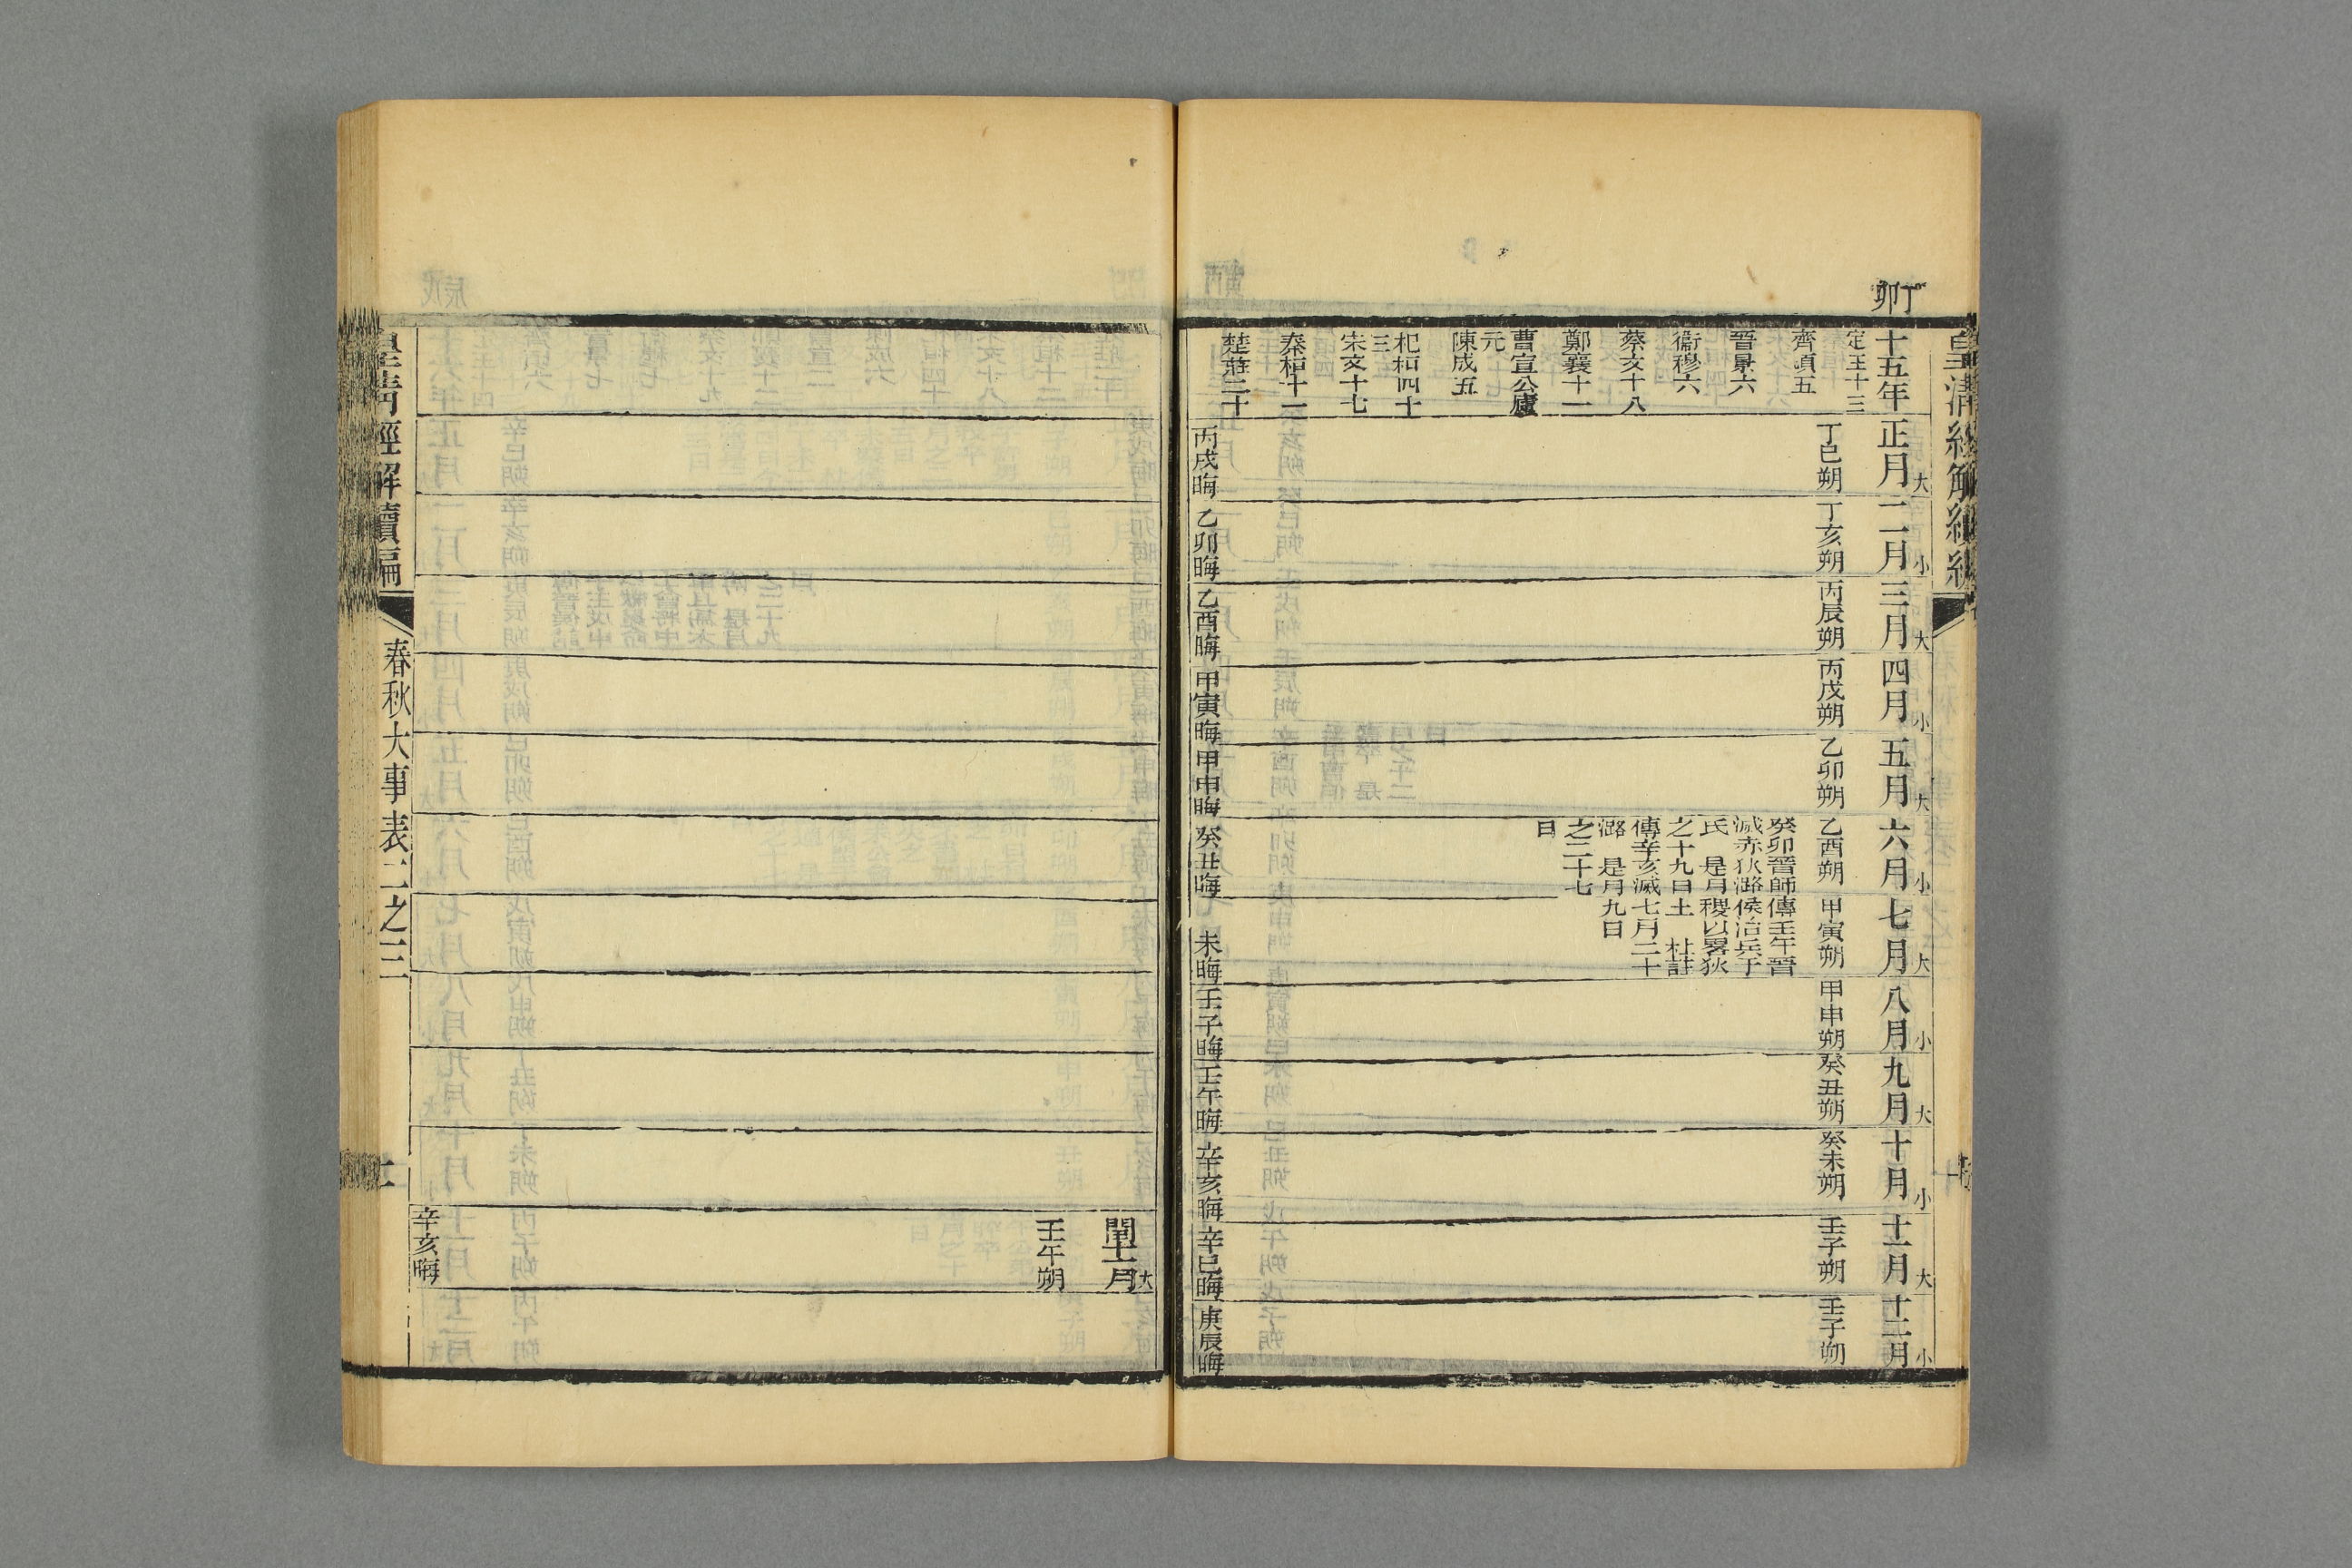 皇清經解續編
丁卯
十五年
定王十三
齊頃五
晉景六
衞穆六
蔡文十八
鄭襄十一
曹宣公廬
元
陳成五
杞桓四十
三
宋文十七
秦桓十一
楚莊二十
正月大
丁巳朔
丙戌晦
二月小
丁亥朔
乙卯晦
三月大
丙辰朔
乙酉晦
四月小
丙戌朔
甲寅晦
五月大
乙卯朔
甲申晦
六月小
乙酉朔
癸卯晉師
滅赤狄潞
氏 是月
之十九日
傳辛亥滅
潞 是月
之二十七
日
癸丑晦
七月大
甲寅朔
傳壬午晉
侯治兵于
稷以畧狄
土 杜註
七月二十
九日
未晦
八月小
甲申朔
壬子晦
九月大
癸丑朔
壬午晦
十月小
癸未朔
辛亥晦
十一月大
壬子朔
辛巳晦
十二月小
壬子朔
庚辰晦
閏十一月大
壬午朔
辛亥晦
皇清經解續編
春秋大事表二之三